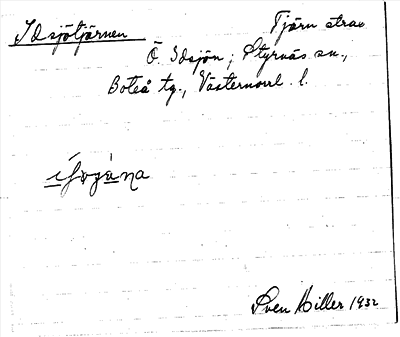 Idsjötjärnen
Tjärn strax
Ö Idsjön; Styrnäs sn.,
Boteå tg., Västernorrl. l.
Sven Hiller 1932